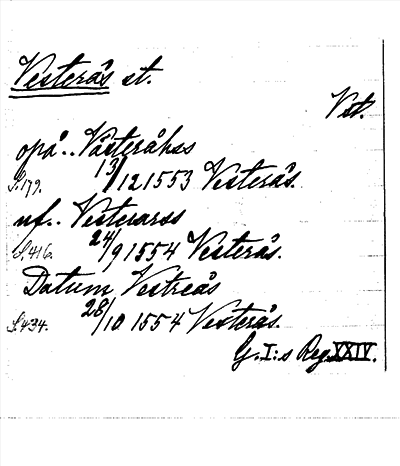 Vesterås st.
Vst.
opå.. Västeråhss
S.179. 13/12 1553 Vesterås.
uf.. Vesterarss
S.416. 24/9 1554 Vesterås.
Datum Vestreås
S.434. 28/10 1554 Vesterås.
G.I:s Reg. XXIV.